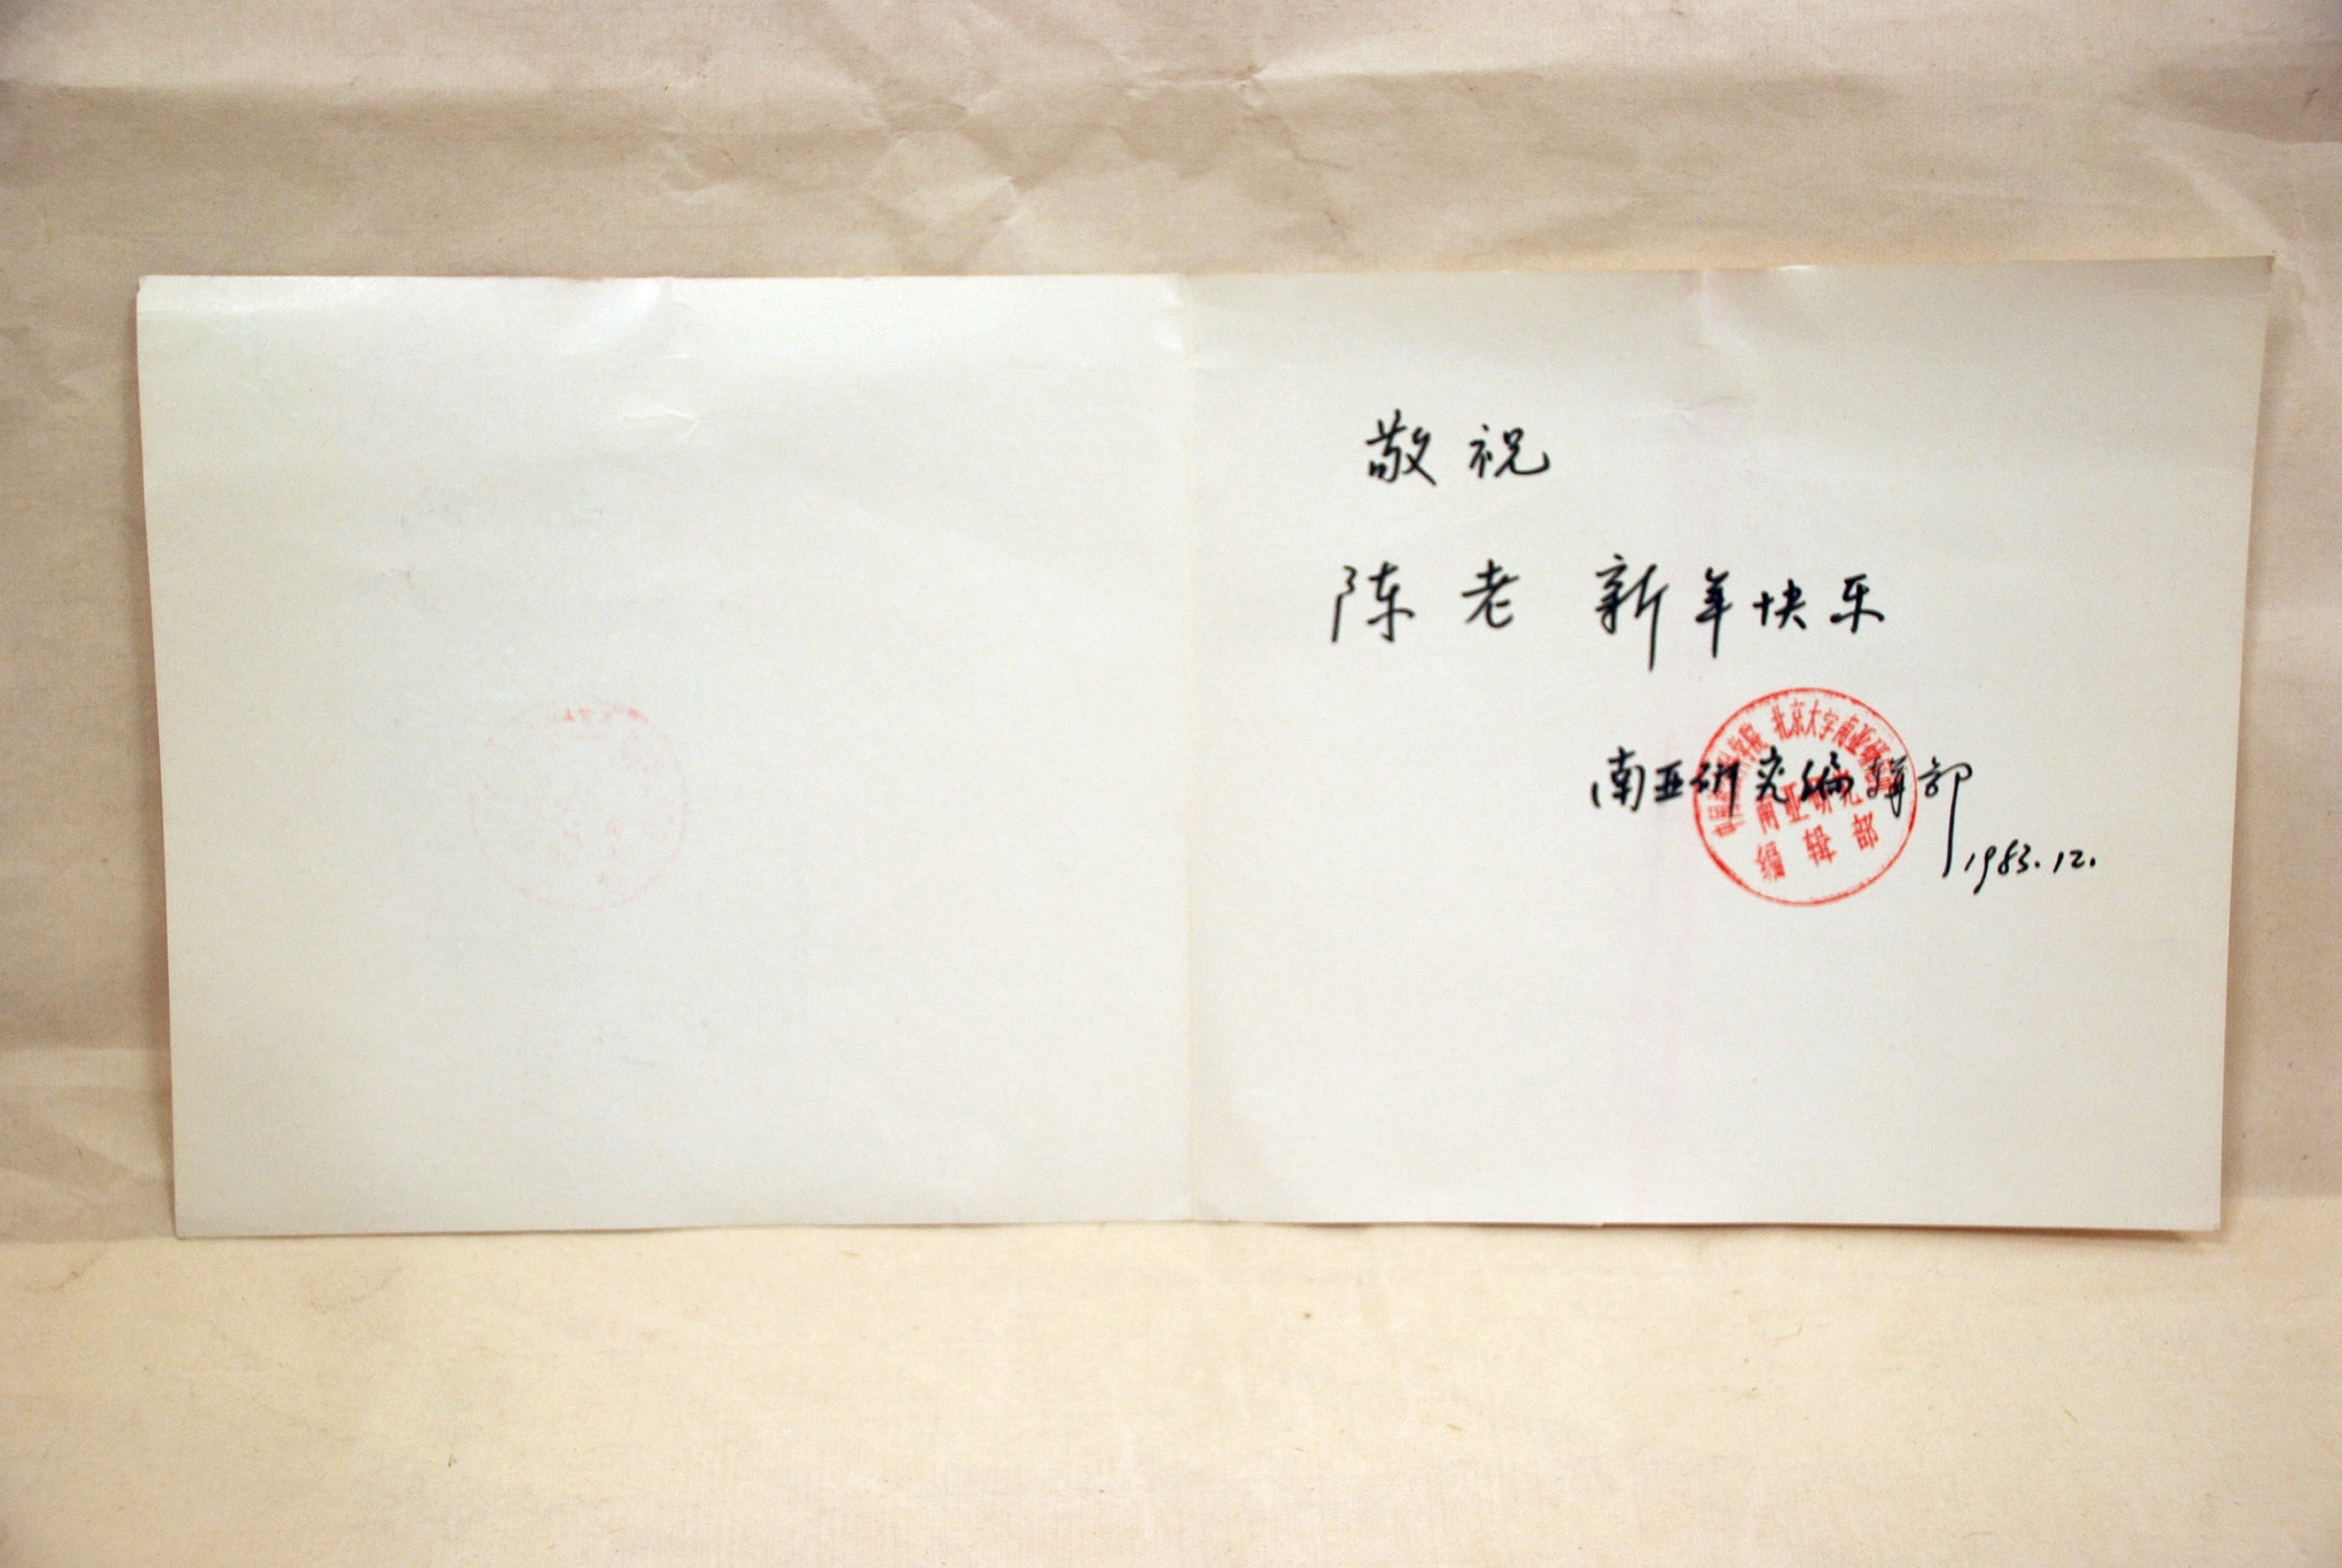 敬祝
陈老 新年快乐
南亚研究编辑部
1983.12.
北京大学南亚研
南亚研究
编辑部